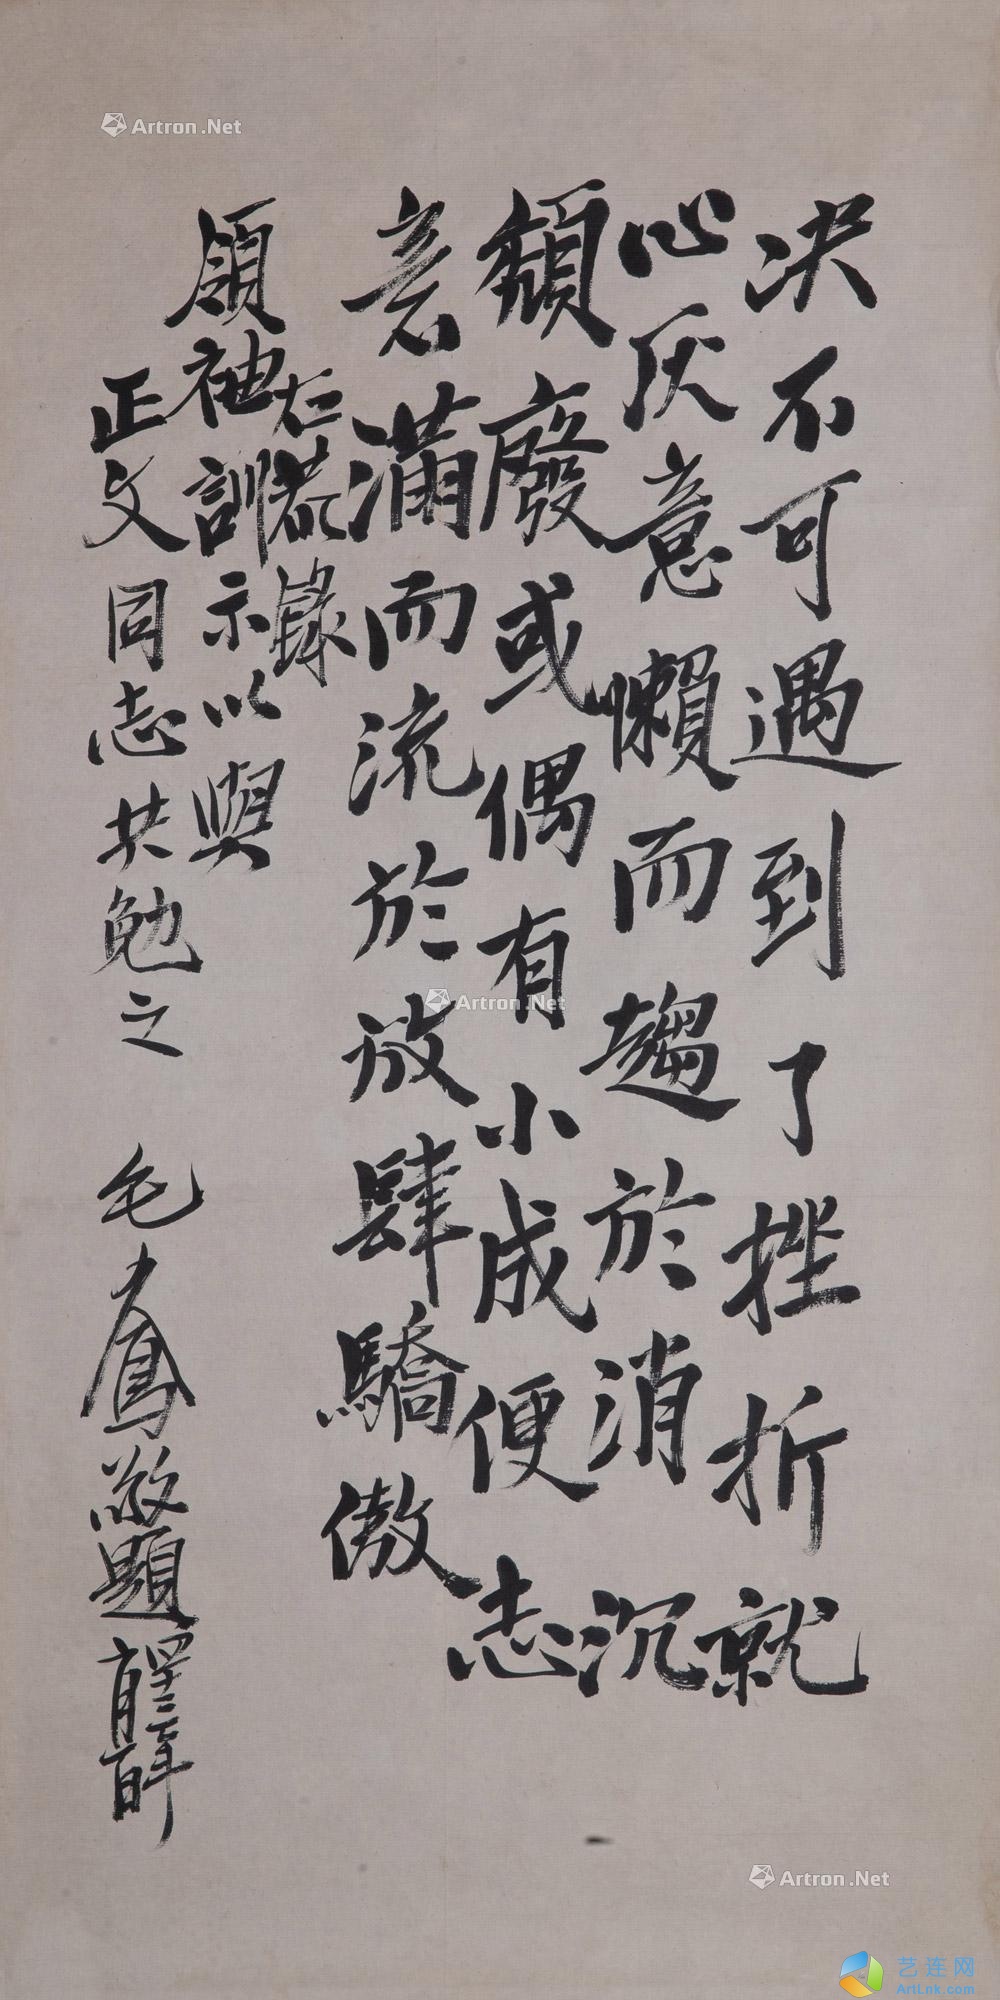 決不可遇到了挫折就
心灰意懶而趨於消沉
頹廢或偶有小成便志
意滿而流於放肆驕傲
右恭錄
領袖訓示以與
正文同志共勉之
毛人鳳敬題
Artron.Net
Artron.Net
Artron.Net
艺连网
ArtLnk.com